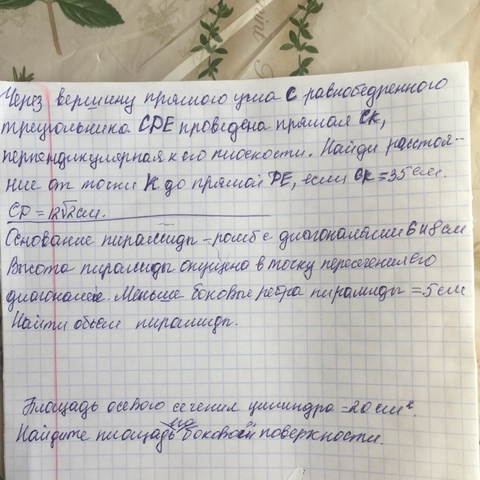 Через вершину прямого угла С равнобедренного
треугольника CDE проведена прямая CK,
перпендикулярная к его плоскости. Найди расстоя-
ние от точки К до прямой DE, если CK = 35 см.
CD = 12√2 см.
Основание пирамиды - ромб с диагоналями 6 и 8 см
Высота пирамиды опущена в точку пересечения его
диагоналей. Меньше боковые ребра пирамиды = 5 см
Найти объем пирамиды.
Площадь осевого сечения цилиндра = 20 см².
Найдите площадь его боковой поверхности.